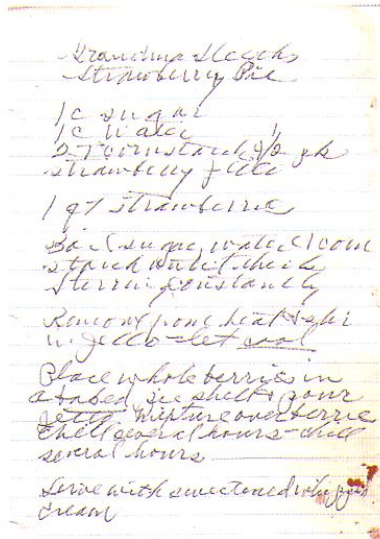 Grandma Sleeghs
Strawberry Pie
1 c sugar
1 c water
2 T cornstarch & 1/2 pk
strawberry jello
1 qt strawberries
Boil sugar, water & corn
starch until thick
stirring constantly
Remove from heat & stir
in jello - let cool
Place whole berries in
a baked pie shell & pour
jello mixture over berries
Chill several hours - chill
several hours
Serve with sweetened whipped
cream